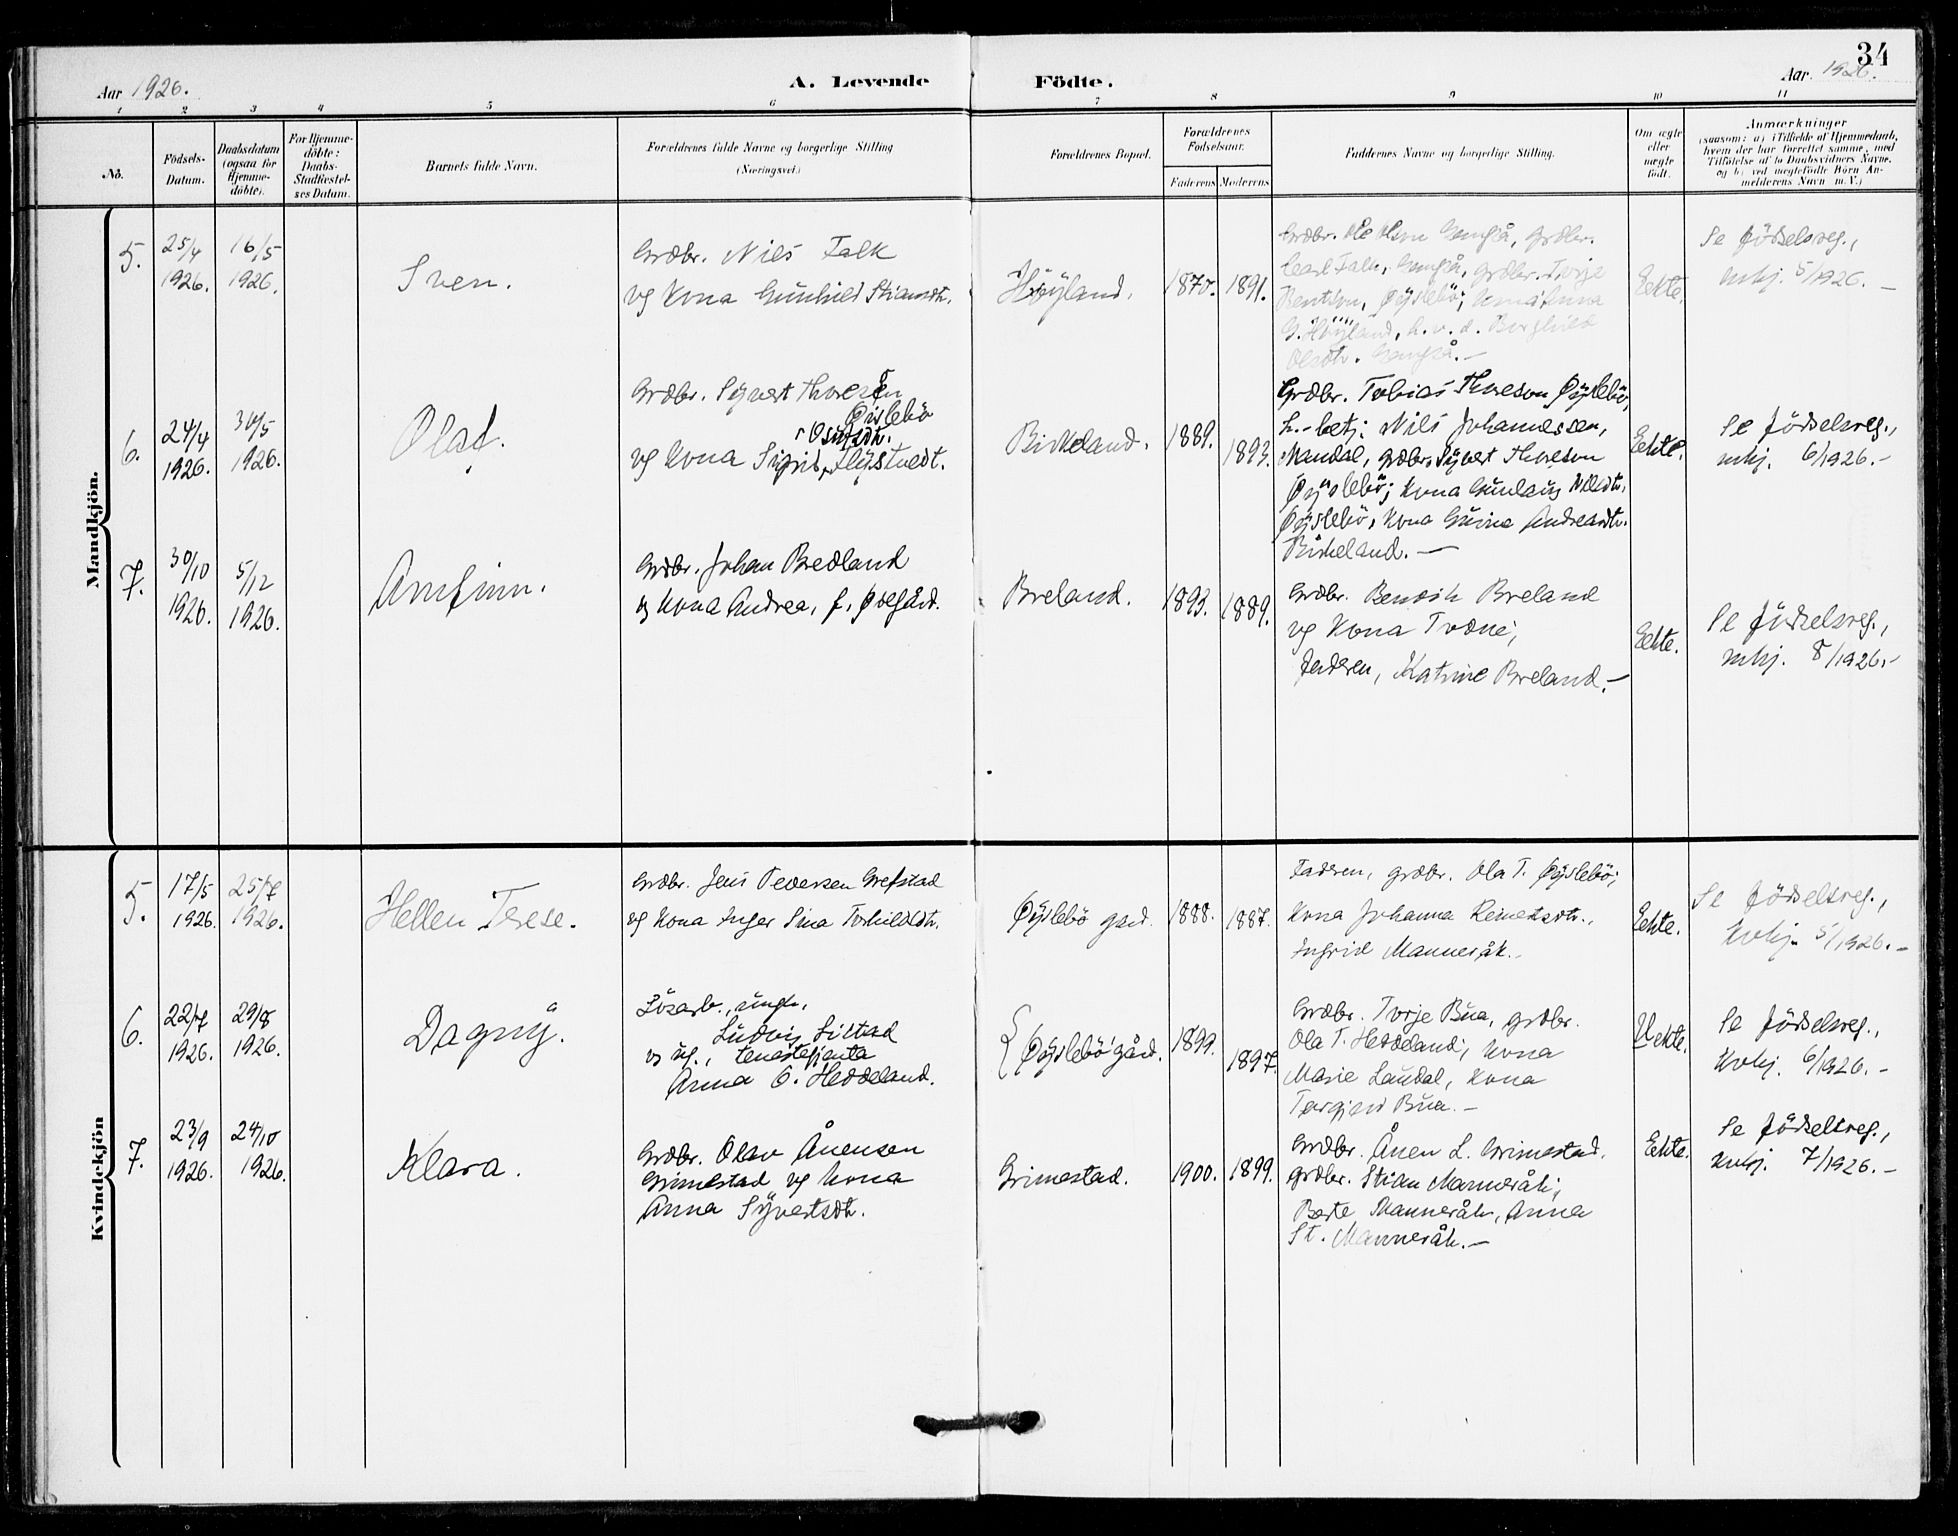 34
Aar 1926.
A. Levende Fødte.
Aar 1926.
1 2 3 4 5 6 7 8 9 10 11
No.
Fødsels-
Datum.
Daabsdatum
(ogsaa for
Hjemme-
døbte).
For Hjemme-
døbte:
Daabs-
Stadfæstel-
ses Datum.
Barnets fulde Navn.
Forældrenes fulde Navne og borgerlige Stilling
(Næringsvei.)
Forældrenes Bopæl.
Forældrenes
Fødselsaar.
Faderens Moderens
Faddernes Navne og borgerlige Stilling.
Om ægte
eller
uægte
født.
Anmærkninger
(saasom: a) i Tilfælde af Hjemmedaab,
hvem der har forrettet samme, med
Tilføielse af to Daabsvidners Navne,
og b) ved uægtefødte Børn An-
melderens Navn m. V.)
Mandkjön.
5.
25/4
1926.
16/5
1926.
Sven.
Grdbr. Nils Falk
og kona Gunhild Stiansdtr.
Höyland.
1870.
1891.
Grdbr. Ole Olsen
Carl Falk, grdbr. Terje
Bentson, Øyslebö; kona Anna
G. Höyland, h. v. d. Borghild
Olsdtr.
Eekte.
Se födselsreg.,
mkj. 5/1926. –
6.
24/4
1926.
30/5
1926.
Olaf.
Grdbr. Syvert Thoresen
Øislebö
og kona Sigrid Osufsdtr. Flystvedt.
Birkeland.
1889.
1893.
Grdbr. Tobias Thoreson Øyslebö,
h.-betj. Nils Johannessen,
Mandal, grdbr. Syvert Thoreson
Øyslebö; kona Gunlaug Nilsdtr.
Øyslebö, kona Gurine Andreasdtr.
Birkeland. –
Eekte.
Se födselsreg.,
mkj. 6/1926. –
7.
30/10
1926.
5/12
1926.
Arnfinn.
Grdbr. Johan Bredland
og kona Andrea, f. Øvegård.
Breland.
1893.
1889.
Grdbr. Bendik Breland
og kona Tvæne,
faderen, Katrine Breland. –
Eekte.
Se födselsreg.,
mkj. 8/1926. –
Kvindekjön
5.
17/5
1926.
25/7
1926.
Hellen Terese.
Grdbr. Jens Pedersen Grefstad
og kona Inger Sina Torkildsdtr.
Øyslebö gard.
1888.
1887.
Faderen, grdbr. Ola T. Øyslebö;
kona Johanna Reinertsdtr.,
Ingrid Manneråk.
Eekte.
Se födselsreg.,
kvkj. 5/1926. –
6.
22/7
1926.
29/8
1926.
Dagny.
Lösarb., ungk.
Ludvig Lilstad
og ug., tenestejenta
Anna O. Heddeland.
Øyslebö gård.
1899.
1897.
Grdbr. Terje Bua, grdbr.
Ola T. Heddeland; kona
Marie Laudal, kona
Torgjerd Bua. –
Uekte.
Se födselsreg.,
kvkj. 6/1926. –
7.
23/9
1926.
24/10
1926.
Klara.
Grdbr. Olav Ånensen
Grimestad og kona
Anna Syvertsdtr.
Grimestad.
1900.
1899.
Grdbr. Ånen L. Grimestad.
grdbr. Stian Manneråk;
Berte Manneråk, Anna
St. Manneråk. –
Eekte.
Se födselsreg.,
kvkj. 7/1926. –